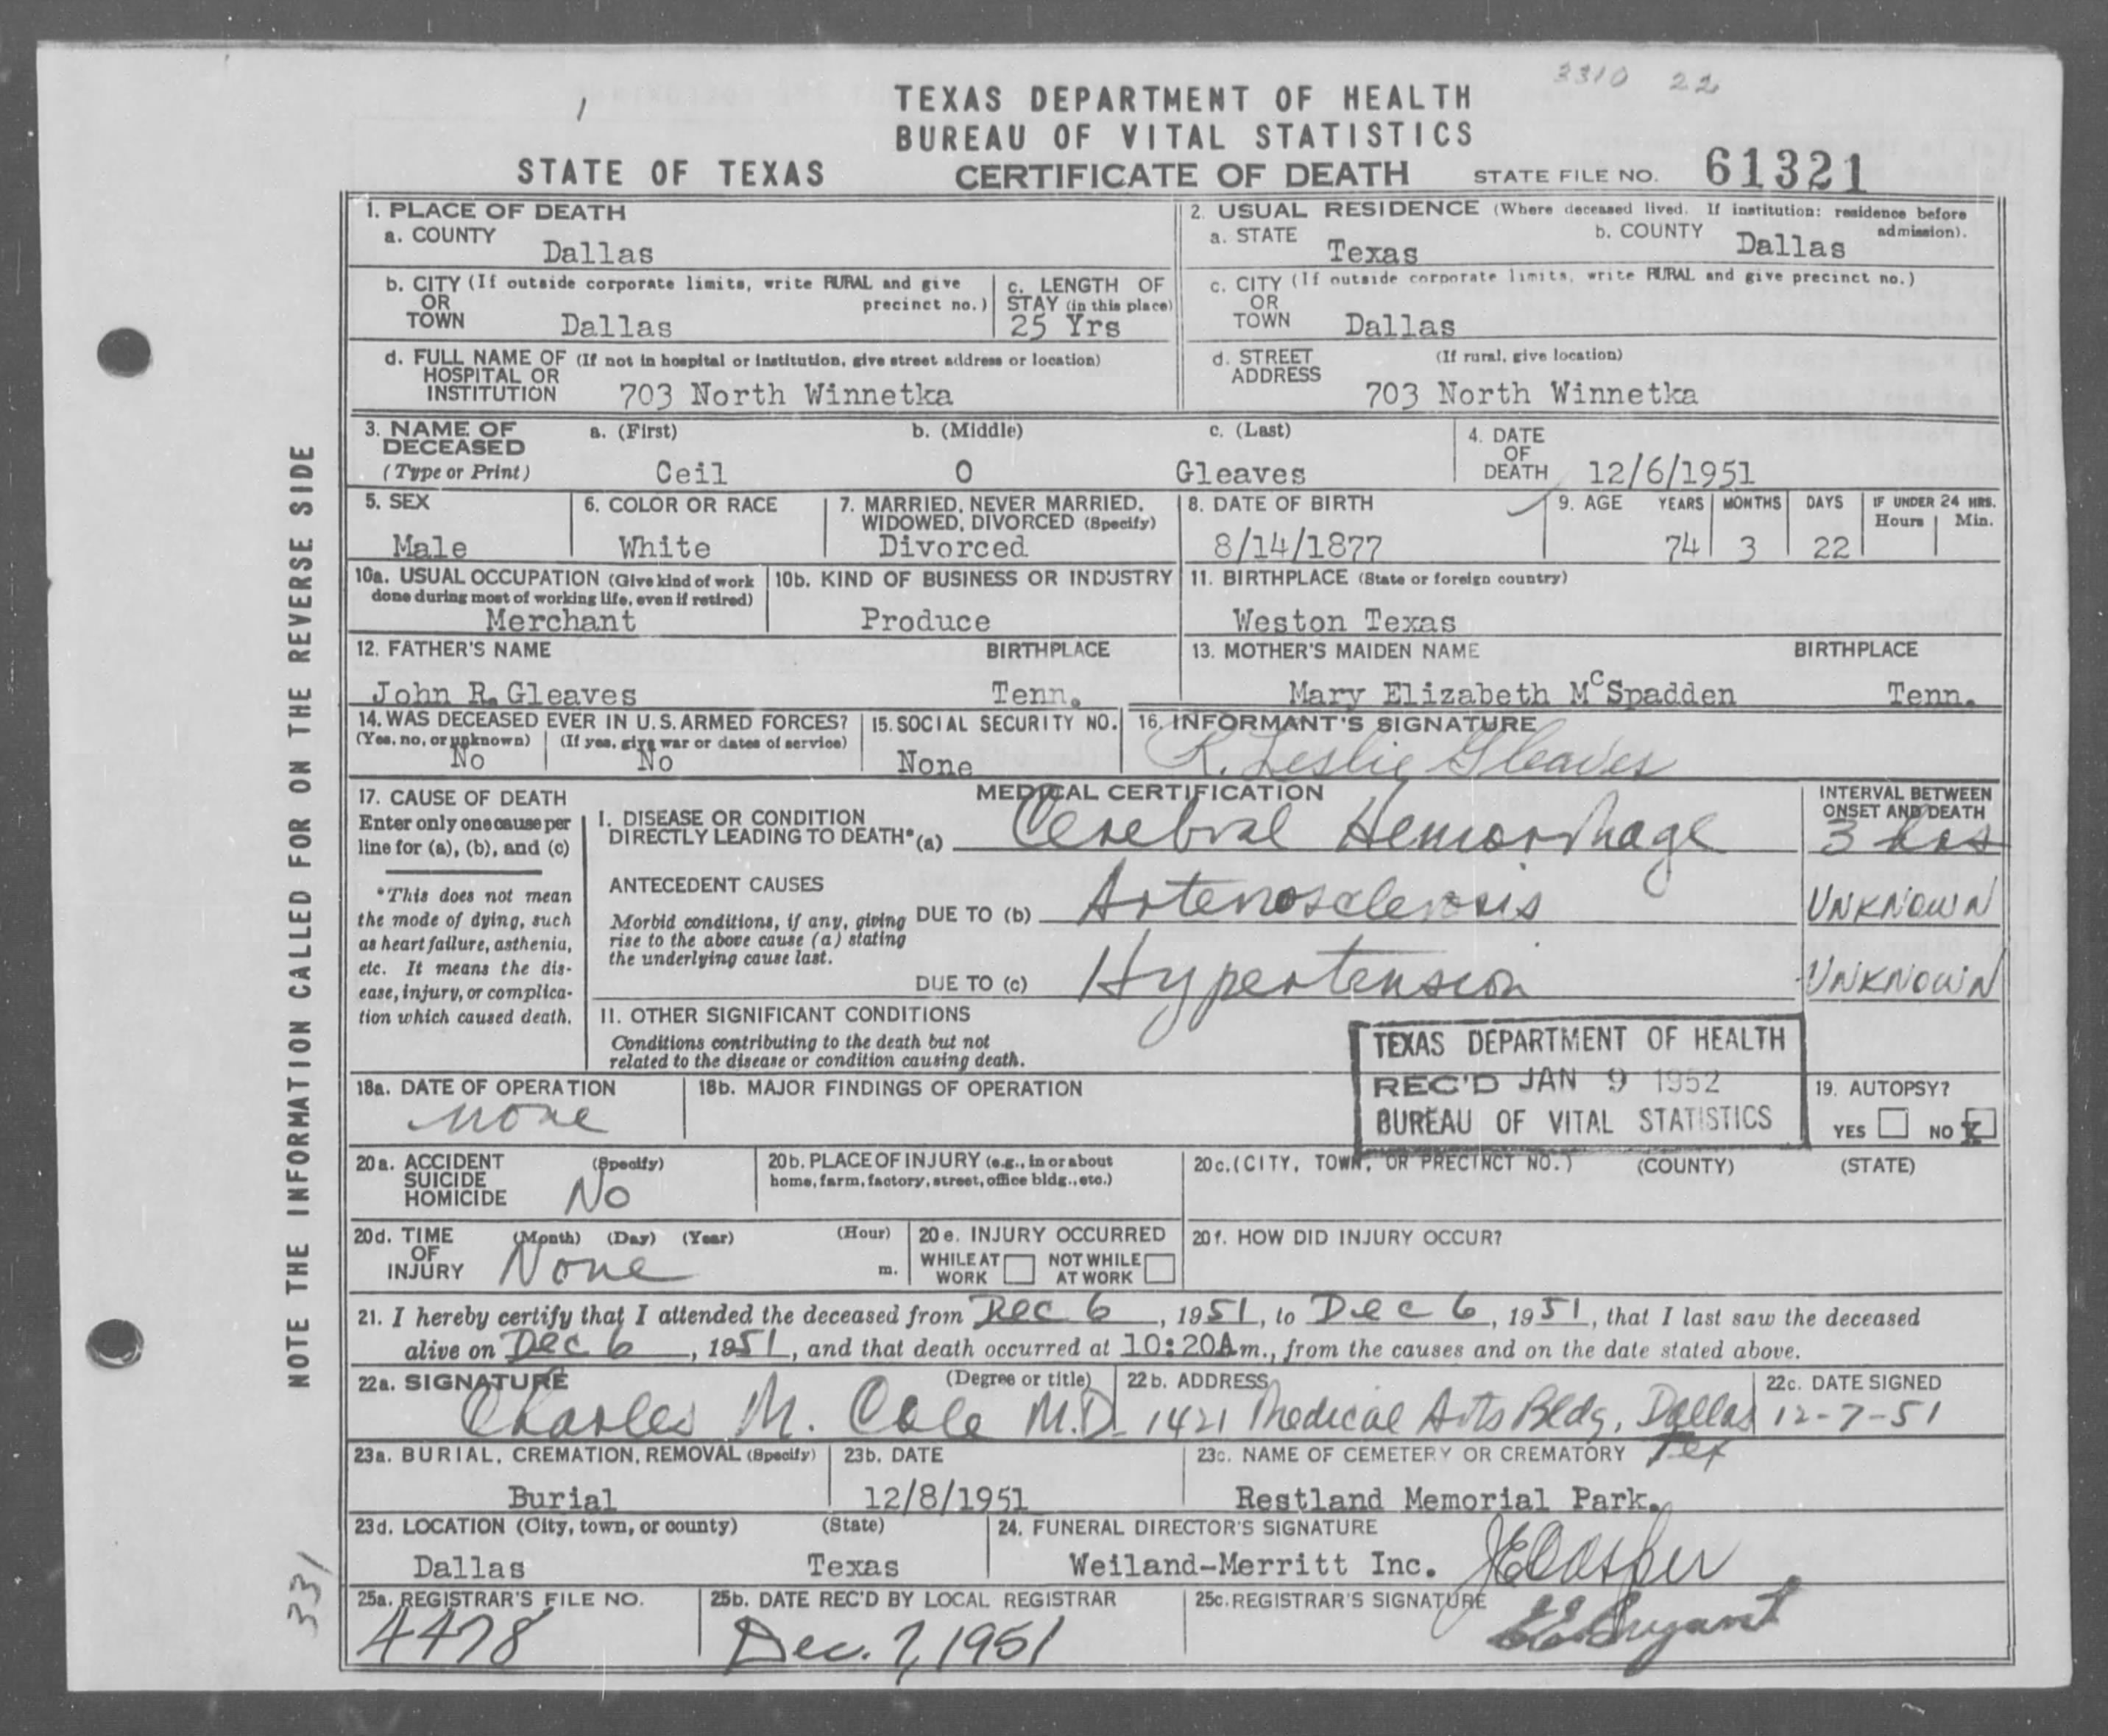 3310 22
TEXAS DEPARTMENT OF HEALTH
BUREAU OF VITAL STATISTICS
STATE OF TEXAS CERTIFICATE OF DEATH STATE FILE NO. 61321
1. PLACE OF DEATH
a. COUNTY Dallas
2. USUAL RESIDENCE (Where deceased lived. If institution: residence before admission).
a. STATE Texas b. COUNTY Dallas
b. CITY (If outside corporate limits, write RURAL and give precinct no.)
OR
TOWN Dallas
c. LENGTH OF
STAY (in this place)
25 Yrs
c. CITY (If outside corporate limits, write RURAL and give precinct no.)
OR
TOWN Dallas
d. FULL NAME OF (If not in hospital or institution, give street address or location)
HOSPITAL OR
INSTITUTION 703 North Winnetka
d. STREET (If rural, give location)
ADDRESS 703 North Winnetka
3. NAME OF DECEASED
(Type or Print)
a. (First) b. (Middle) c. (Last)
Ceil O Gleaves
4. DATE
OF
DEATH 12/6/1951
5. SEX
Male
6. COLOR OR RACE
White
7. MARRIED, NEVER MARRIED,
WIDOWED, DIVORCED (Specify)
Divorced
8. DATE OF BIRTH
8/14/1877
9. AGE YEARS MONTHS DAYS IF UNDER 24 HRS.
Hours Min.
74 3 22
10a. USUAL OCCUPATION (Give kind of work
done during most of working life, even if retired)
Merchant
10b. KIND OF BUSINESS OR INDUSTRY
Produce
11. BIRTHPLACE (State or foreign country)
Weston Texas
12. FATHER'S NAME BIRTHPLACE
John R. Gleaves Tenn.
13. MOTHER'S MAIDEN NAME BIRTHPLACE
Mary Elizabeth McSpadden Tenn.
14. WAS DECEASED EVER IN U.S. ARMED FORCES?
(Yes, no, or unknown) (If yes, give war or dates of service)
No No
15. SOCIAL SECURITY NO.
None
16. INFORMANT'S SIGNATURE
R. Leslie Gleaves
17. CAUSE OF DEATH
Enter only one cause per
line for (a), (b), and (c)
*This does not mean
the mode of dying, such
as heart failure, asthenia,
etc. It means the dis-
ease, injury, or complica-
tion which caused death.
MEDICAL CERTIFICATION
INTERVAL BETWEEN
ONSET AND DEATH
I. DISEASE OR CONDITION
DIRECTLY LEADING TO DEATH* (a) Cerebral Hemorrhage 3 hrs
ANTECEDENT CAUSES
Morbid conditions, if any, giving
rise to the above cause (a) stating
the underlying cause last.
DUE TO (b) Arteriosclerosis UNKNOWN
DUE TO (c) Hypertension UNKNOWN
II. OTHER SIGNIFICANT CONDITIONS
Conditions contributing to the death but not
related to the disease or condition causing death.
TEXAS DEPARTMENT OF HEALTH
REC'D JAN 9 1952
BUREAU OF VITAL STATISTICS
18a. DATE OF OPERATION
none
18b. MAJOR FINDINGS OF OPERATION
19. AUTOPSY?
YES NO X
20a. ACCIDENT (Specify)
SUICIDE
HOMICIDE No
20b. PLACE OF INJURY (e.g., in or about
home, farm, factory, street, office bldg., etc.)
20c. (CITY, TOWN, OR PRECINCT NO.) (COUNTY) (STATE)
20d. TIME (Month) (Day) (Year) (Hour)
OF
INJURY None m.
20e. INJURY OCCURRED
WHILE AT WORK NOT WHILE AT WORK
20f. HOW DID INJURY OCCUR?
21. I hereby certify that I attended the deceased from Dec 6, 1951, to Dec 6, 1951, that I last saw the deceased
alive on Dec 6, 1951, and that death occurred at 10:20Am., from the causes and on the date stated above.
22a. SIGNATURE (Degree or title)
Charles M. Cole M.D.
22b. ADDRESS
1421 Medical Arts Bldg, Dallas Tex
22c. DATE SIGNED
12-7-51
23a. BURIAL, CREMATION, REMOVAL (Specify)
Burial
23b. DATE
12/8/1951
23c. NAME OF CEMETERY OR CREMATORY
Restland Memorial Park.
23d. LOCATION (City, town, or county) (State)
Dallas Texas
24. FUNERAL DIRECTOR'S SIGNATURE
Weiland-Merritt Inc.
25a. REGISTRAR'S FILE NO.
4478
25b. DATE REC'D BY LOCAL REGISTRAR
Dec. 7, 1951
25c. REGISTRAR'S SIGNATURE
NOTE THE INFORMATION CALLED FOR ON THE REVERSE SIDE
331